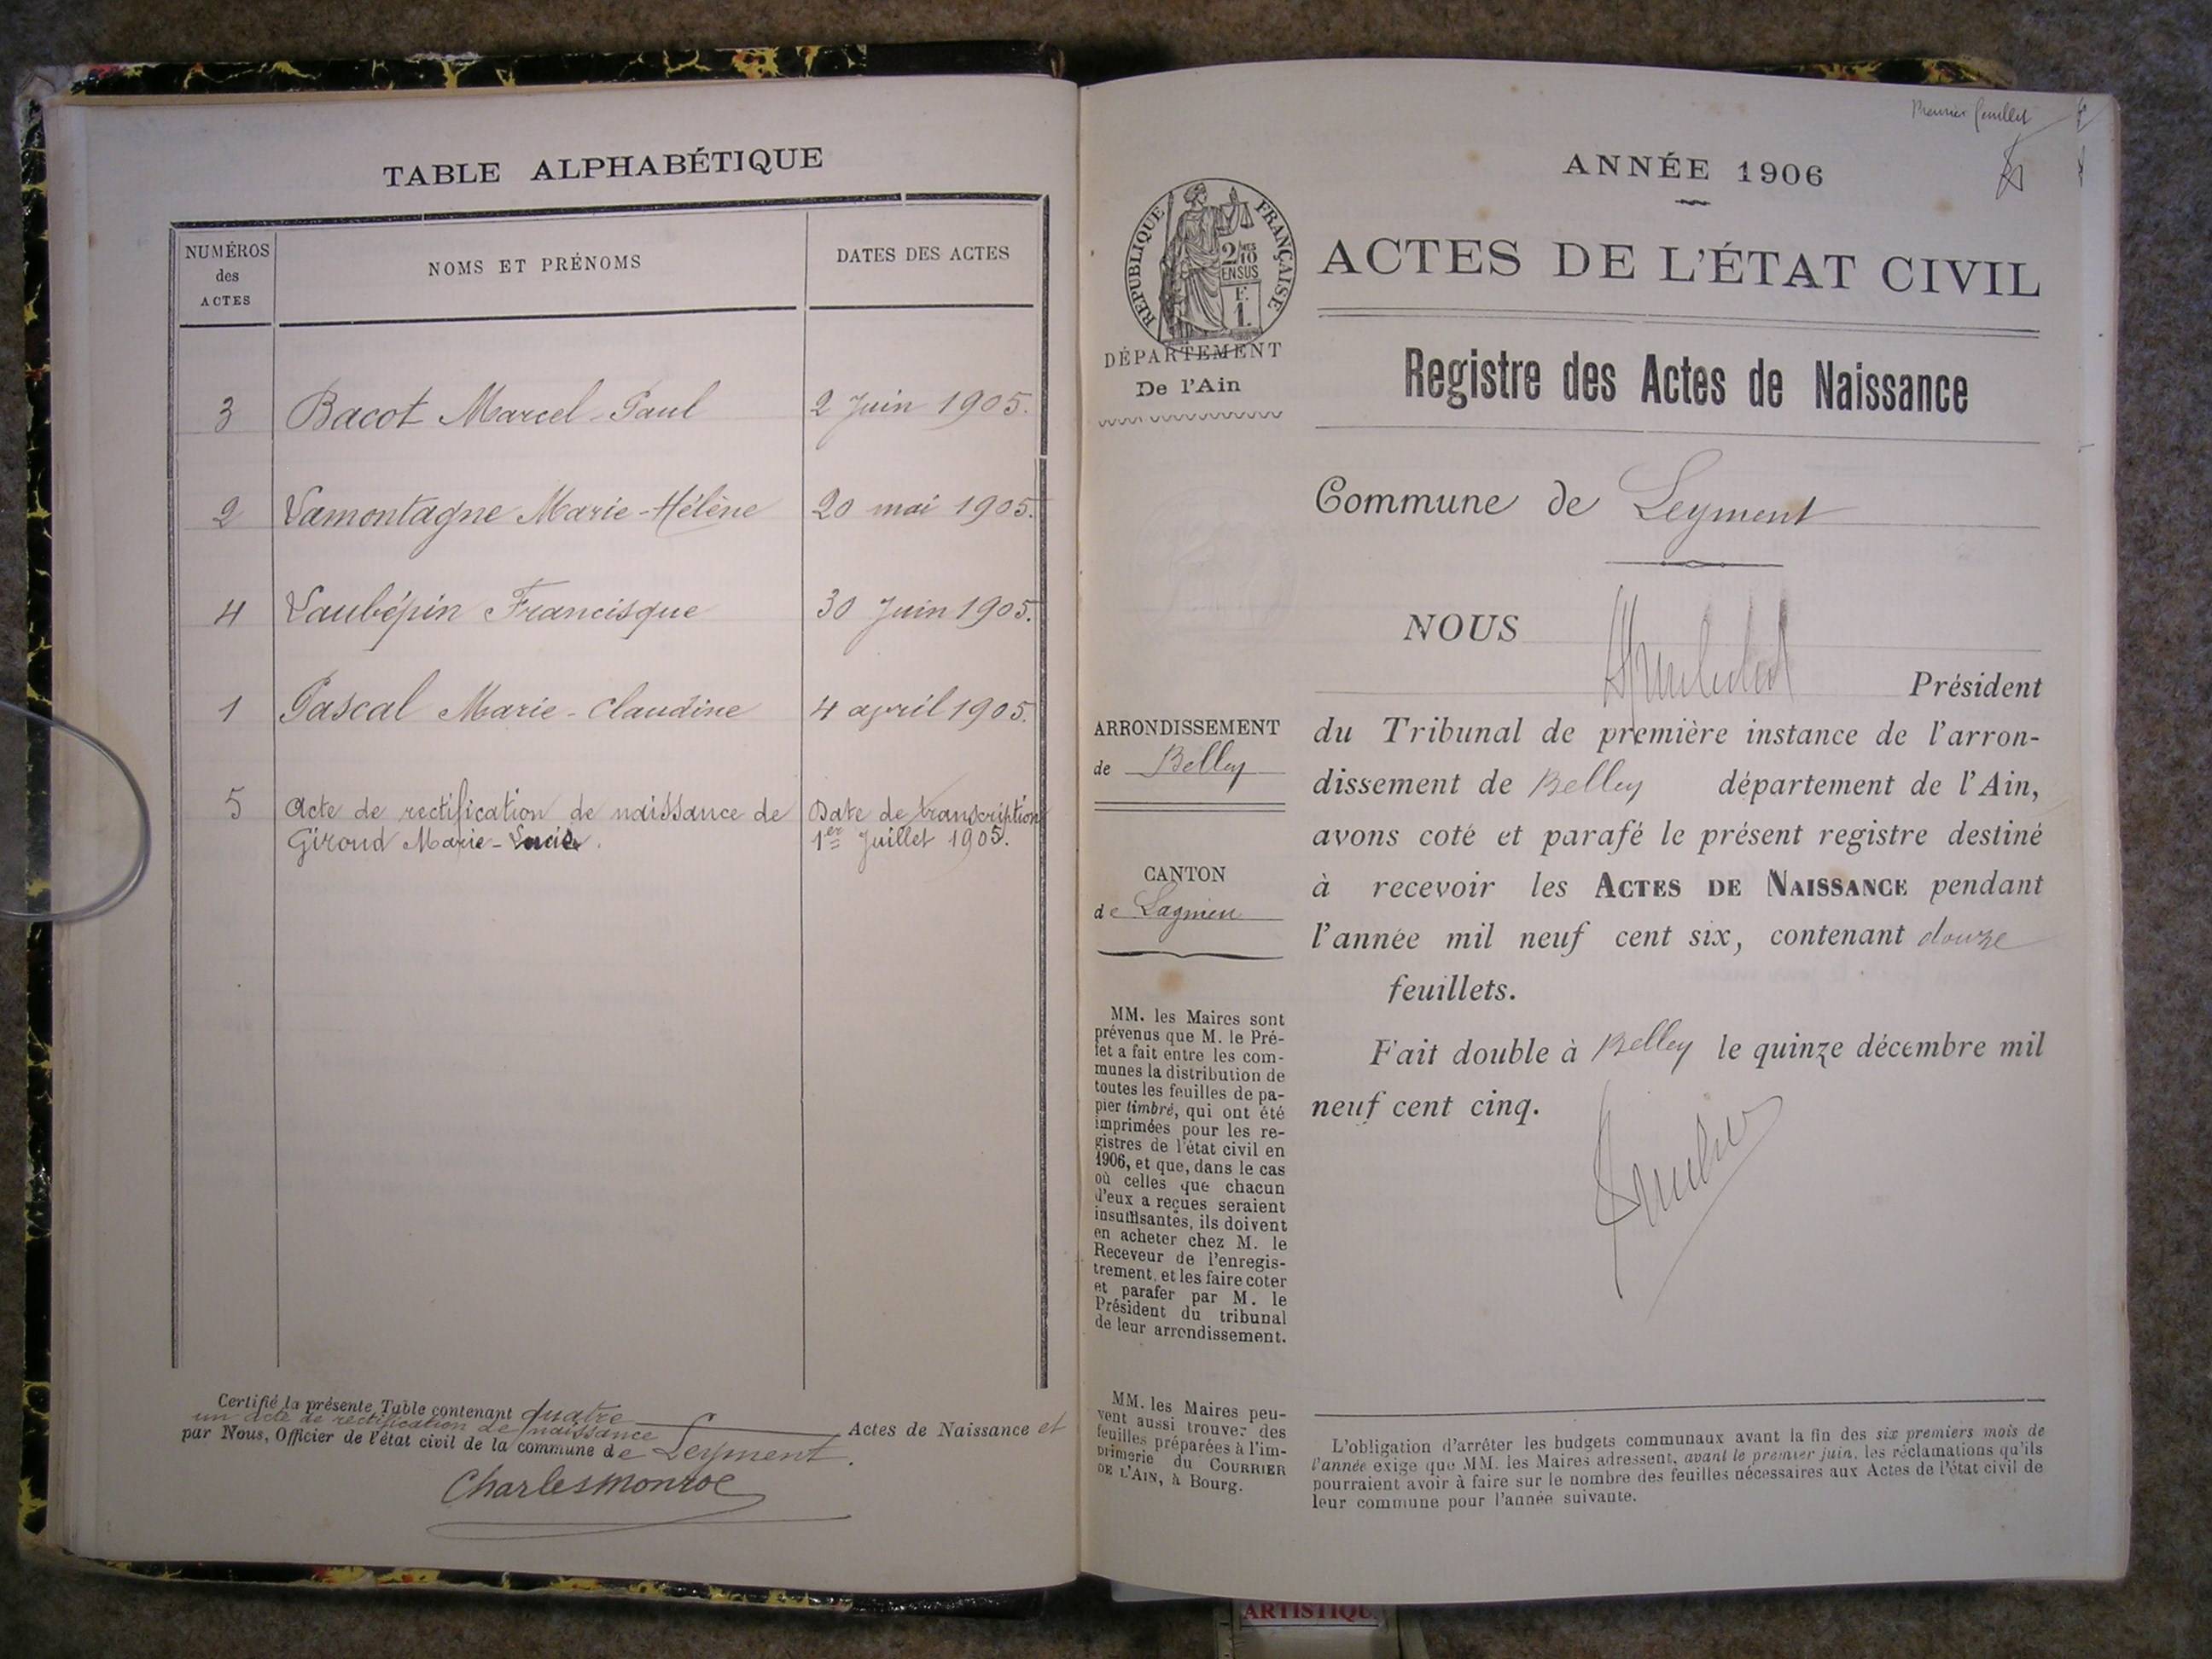 TABLE ALPHABÉTIQUE
NUMÉROS
des
ACTES
NOMS ET PRÉNOMS
DATES DES ACTES
3 Bacot Marcel-Paul 2 Juin 1905.
2 Lamontagne Marie-Hélène 20 mai 1905.
4 Laubépin Francisque 30 Juin 1905.
1 Pascal Marie-Claudine 4 april 1905.
5 Acte de rectification de naissance de Date de transcription
Giroud Marie-Lucie. 1er Juillet 1905.
Certifié la présente Table contenant quatre Actes de Naissance et
un acte de rectification de naissance
par Nous, Officier de l'état civil de la commune de Leyment.
Charlesmonroe
Premier feuillet
ANNÉE 1906
RÉPUBLIQUE FRANÇAISE
2/10
EN SUS
F.
1.
ACTES DE L'ÉTAT CIVIL
DÉPARTEMENT
De l'Ain
Registre des Actes de Naissance
Commune de Leyment
NOUS
Président
du Tribunal de première instance de l'arron-
dissement de Belley département de l'Ain,
avons coté et parafé le présent registre destiné
à recevoir les ACTES DE NAISSANCE pendant
l'année mil neuf cent six, contenant douze
feuillets.
Fait double à Belley le quinze décembre mil
neuf cent cinq.
ARRONDISSEMENT
de Belley
CANTON
de Lagnieu
MM. les Maires sont
prévenus que M. le Pré-
fet a fait entre les com-
munes la distribution de
toutes les feuilles de pa-
pier timbré, qui ont été
imprimées pour les re-
gistres de l'état civil en
1906, et que, dans le cas
où celles que chacun
d'eux a reçues seraient
insuffisantes, ils doivent
en acheter chez M. le
Receveur de l'enregis-
trement, et les faire coter
et parafer par M. le
Président du tribunal
de leur arrondissement.
MM. les Maires peu-
vent aussi trouver des
feuilles préparées à l'im-
primerie du COURRIER
DE L'AIN, à Bourg.
L'obligation d'arrêter les budgets communaux avant la fin des six premiers mois de
l'année exige que MM. les Maires adressent, avant le premier juin, les réclamations qu'ils
pourraient avoir à faire sur le nombre des feuilles nécessaires aux Actes de l'état civil de
leur commune pour l'année suivante.
ARTISTIQU